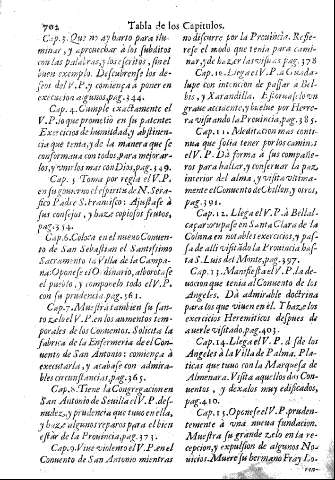 702 Tabla de los Capitulos.
Cap. 3. Que no ay harto para ilu-
minar, y aprovechar à los subditos
con las palabras, y los escritos, sin el
buen exemplo. Descubrense los de-
seos del V.P. y comiença à poner en
execucion algunos, pag. 344.
Cap. 4. Cumple exactamente el
V.P. lo que prometiò en su patente:
Exercicios de humildad, y abstinen-
cia que tenia, y de la manera que se
conformava con todos, para mejorar-
los, y unirlos mas con Dios, pag. 349.
Cap. 5. Toma por regla el V.P.
en su govierno el espiritu de N. Sera-
fico Padre S. Francisco: Ajustase à
sus consejos, y haze copiosos frutos,
pag. 354.
Cap. 6. Coloca en el nuevo Conven-
to de San Sebastian el Santissimo
Sacramento la Villa de la Campa-
na: Oponese el Ordinario, alborotase
el pueblo, y componelo todo el V.P.
con su prudencia pag. 361.
Cap. 7. Muestra tambien su fan-
ro zelo el V.P. en los aumentos tem-
porales de los Conventos. Solicita la
fabrica de la Enfermeria de el Con-
vento de San Antonio: comiença à
executarla, y acabase con admira-
bles circunstancias, pag. 365.
Cap. 8. Tiene la Congregacion en
San Antonio de Sevilla el V.P. des-
nudez, y prudencia que tuvo en ella,
y haze algunos reparos para el bien
estàr de la Provincia, pag. 373.
Cap. 9. Vive violento el V.P. en el
Convento de San Antonio mientras
no discurre por la Provincia. Refie-
rese el modo que tenia para cami-
nar, y de hazer las visitas pag. 378
Cap. 10. Llega el V.P. à Guada-
lupe con intencion de passar à Bel-
bis, y Xarandilla. Estorvaselo vn
grave accidente, y buelve por Herre-
ra visitando la Provincia, pag. 385.
Cap. 11. Meditacion mas conti-
nua que solia tener por los caminos
el V.P. Dà forma à sus compañe-
ros para hallar, y conservar la paz
interior del alma, y visita vltima-
mente el Convento de Chillon, y otros,
pag. 391.
Cap. 12. Llega el V.P. à Belal-
caçar ocupase en Santa Clara de la
Coluna en notables exercicios, y pas-
sa de alli visitãdo la Provincia has-
ta S. Luis del Monte, pag. 397.
Cap. 13. Manifiesta el V.P. la de-
vocion que tenia al Convento de los
Angeles. Dà admirable doctrina
para los que viven en èl. Y haze los
exercicios Heremiticos despues de
averle visitado, pag. 403.
Cap. 14. Llega el V.P. desde los
Angeles à la Villa de Palma. Pla-
ticas que tuvo con la Marquesa de
Almenara. Visita aquellos dos Con-
ventos, y dexalos muy edificados,
pag. 410.
Cap. 15. Oponese el V.P. pruden-
temente à vna nueva fundacion.
Muestra su grande zelo en la re-
cepcion, y expulsion de algunos No-
vicios. Muere su hermano Fray Lo-
ren-